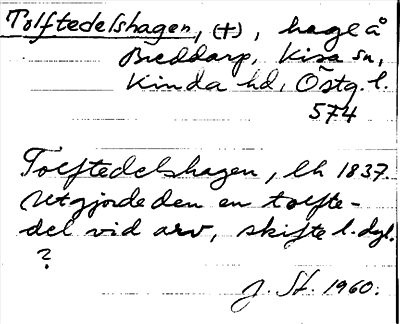 Tolftedelshagen, (+), hage å
Breddarp, Kisa sn,
Kinda hd, Östg. l.
574
Tolftedelshagen, lh 1837.
Utgjorde den en tolfte-
del vid arv, skifte l. dyl.
?
J. St. 1960.